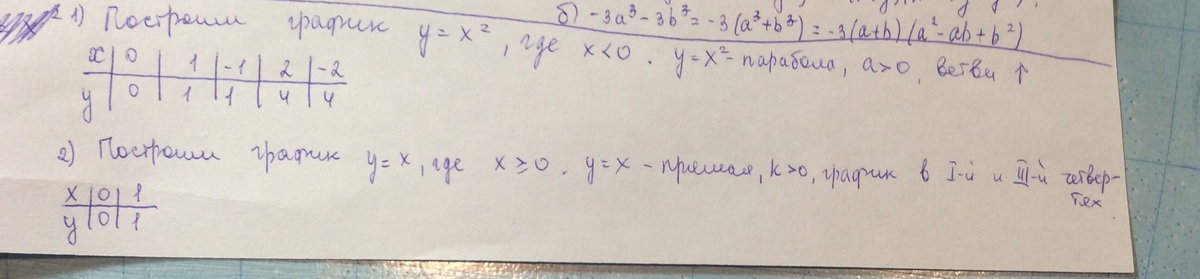 б) -3a³-3b³=-3(a³+b³)=-3(a+b)(a²-ab+b²)
1) Построим график y=x², где x<0. y=x²-парабола, a>0, ветви ↑
x 0 1 -1 2 -2
y 0 1 1 4 4
2) Построим график y=x, где x≥0. y=x - прямая, k>0, график в I-й и III-й четвер-
тях.
x 0 1
y 0 1